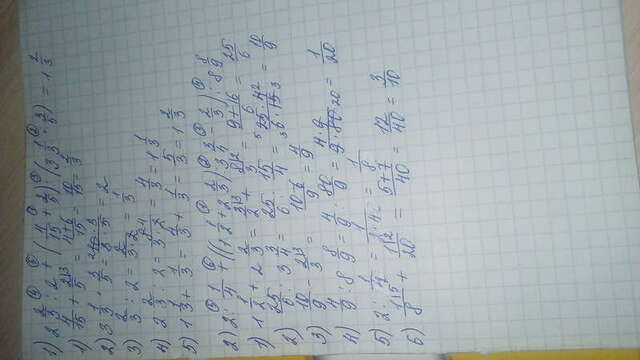 1) 2 2/3 : 2 + (4/15 + 2/5) : (3 1/3 · 3/5) = 1 2/3
1) 4/15 + 2/5 = (4+6)/15 = 10/15 = 2/3
2) 3 1/3 · 3/5 = (10 · 3)/(3 · 5) = 2
3) 2/3 : 2 = 2/(3·2) = 1/3
4) 2 2/3 : 2 = 8/(3·2) = 4/3 = 1 1/3
5) 1 1/3 + 1/3 = 4/3 + 1/3 = 5/3 = 1 2/3
2) 2 : 1/4 + ((1 1/2 + 2 2/3) : 3 3/4 - 2/3) : 8 8/9
1) 1 1/2 + 2 2/3 = 3/2 + 8/3 = (9+16)/6 = 25/6
2) 25/6 : 3 3/4 = 25/6 · 15/4 = (25·4)/(6·15) = 10/9
3) 10/9 - 2/3 = (10-6)/9 = 4/9
4) 4/9 : 8 8/9 = 4/9 : 80/9 = (4·9)/(9·80) = 1/20
5) 2 : 1/4 = 1/(2·4) = 1/8
6) 1/8 + 1/20 = (5+7)/40 = 12/40 = 3/10